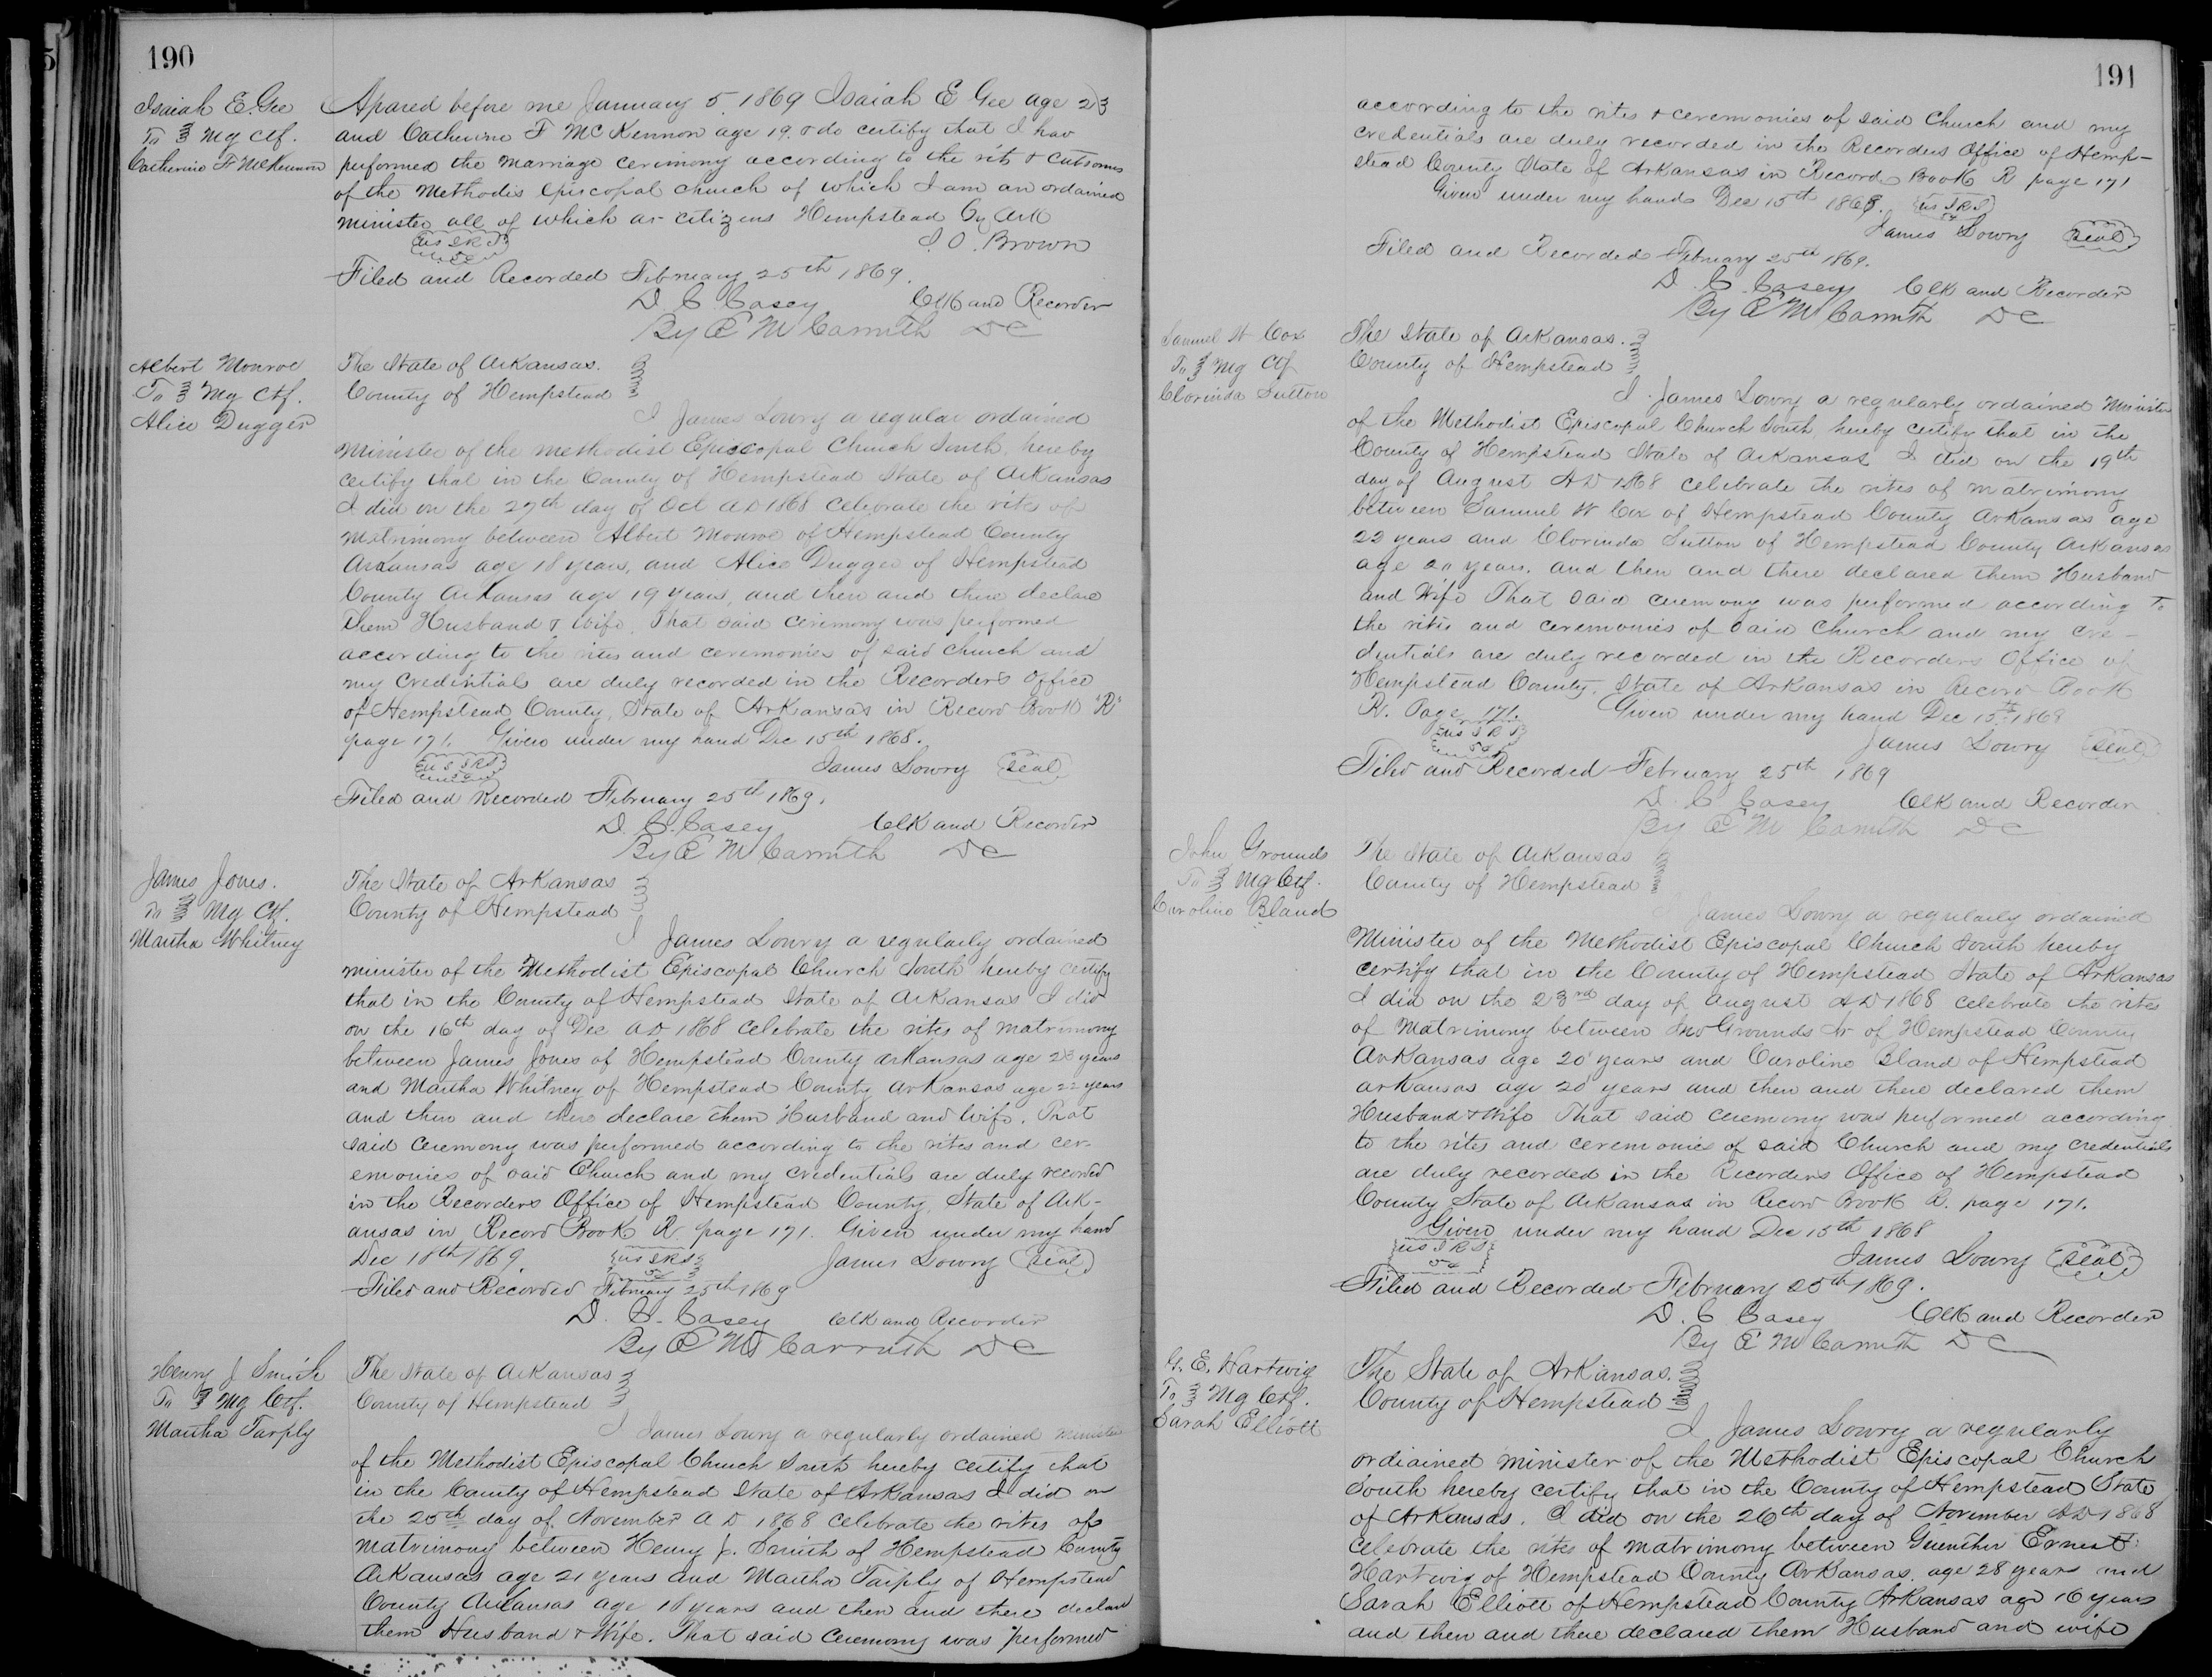 190
Isaiah E. Gee
To Mg Ctf.
Catherine F McKennon
Apared before me January 5 1869 Isaiah E Gee age 23
and Catherine F McKennon age 19. & do certify that I hav
performed the marriage cerimony according to the rits & cutsoms
of the Methodis Episcopal church of which I am an ordained
minister all of which ar citizens Hempstead Cy Ark
US IRS J. O. Brown
5c
Filed and Recorded February 25th 1869.
D C Casey Clk and Recorder
By E M Carruth DC
Albert Monroe
To Mg Ctf.
Alice Dugger
The State of Arkansas.
County of Hempstead
I James Lowry a regular ordained
minister of the Methodist Episcopal Church South, hereby
certify that in the County of Hempstead State of Arkansas
I did on the 27th day of Oct AD 1868 celebrate the rites of
matrimony between Albert Monroe of Hempstead County
Arkansas age 18 years, and Alice Dugger of Hempstead
County Arkansas age 19 years, and then and there declare
them Husband & Wife. That said cerimony was performed
according to the rites and ceremonies of said church and
my credentials are duly recorded in the Recorders office
of Hempstead County, State of Arkansas in Record Book "R"
page 171. Given under my hand Dec 15th 1868.
US IRS James Lowry Seal
Filed and Recorded February 25th 1869.
D. C. Casey Clk and Recorder
By E M Carruth DC
James Jones.
To Mg Ctf.
Martha Whitney
The State of Arkansas
County of Hempstead
I James Lowry a regularly ordained
minister of the Methodist Episcopal Church South hereby certify
that in the County of Hempstead State of Arkansas I did
on the 16th day of Dec AD 1868 celebrate the rites of matrimony
between James Jones of Hempstead County Arkansas age 23 years
and Martha Whitney of Hempstead County Arkansas age 22 years
and then and there declare them Husband and Wife. That
said ceremony was performed according to the rites and cer-
emonies of said Church and my credentials are duly recorded
in the Recorders Office of Hempstead County, State of Ark-
ansas in Record Book R. page 171. Given under my hand
Dec 18th 1869. US IRS James Lowry Seal
5c
Filed and Recorded February 25th 1869
D. C. Casey Clk and Recorder
By E M Carruth DC
Henry J Smith
To Mg Ctf.
Martha Tarply
The State of Arkansas
County of Hempstead
I James Lowry a regularly ordained minister
of the Methodist Episcopal Church South hereby certify that
in the County of Hempstead State of Arkansas I did on
the 25th day of November AD 1868 celebrate the rites of
matrimony between Henry J. Smith of Hempstead County
Arkansas age 21 years and Martha Tarply of Hempstead
County Arkansas age 18 years and then and there declared
them Husband & Wife. That said ceremony was performed
191
according to the rites & ceremonies of said Church and my
credentials are duly recorded in the Recorders Office of Hemp-
stead County State of Arkansas in Record Book R page 171
Given under my hand Dec 15th 1868. US IRS
5c
James Lowry Seal
Filed and Recorded February 25th 1869.
D. C. Casey Clk and Recorder
By E M Carruth DC
Samuel W Cox
To Mg Ctf
Clorinda Sutton
The State of Arkansas.
County of Hempstead
I James Lowry a regularly ordained Minister
of the Methodist Episcopal Church South hereby certify that in the
County of Hempstead State of Arkansas I did on the 19th
day of August AD 1868 celebrate the rites of matrimony
between Samuel W Cox of Hempstead County Arkansas age
22 years and Clorinda Sutton of Hempstead County Arkansas
age 20 years. and then and there declared them Husband
and Wife That said ceremony was performed according to
the rites and ceremonies of said Church and my cre-
dentials are duly recorded in the Recorders Office of
Hempstead County, State of Arkansas in Record Book
R. Page 171. Given under my hand Dec 15th 1868
US IRS
5c James Lowry Seal
Filed and Recorded February 25th 1869
D. C Casey Clk and Recorder
By E M Carruth DC
John Grounds
To Mg Ctf.
Caroline Bland
The State of Arkansas
County of Hempstead
I James Lowry a regularly ordained
Minister of the Methodist Episcopal Church South hereby
certify that in the County of Hempstead State of Arkansas
I did on the 23rd day of August AD 1868 celebrate the rites
of Matrimony between Jno Grounds Sr of Hempstead County
Arkansas age 20 years and Caroline Bland of Hempstead
Arkansas age 20 years and then and there declared them
Husband & Wife That said ceremony was performed according
to the rites and ceremonies of said Church and my credentials
are duly recorded in the Recorders Office of Hempstead
County State of Arkansas in Record Book R. page 171.
Given under my hand Dec 15th 1868
US IRS
5c James Lowry Seal
Filed and Recorded February 25th 1869.
D. C Casey Clk and Recorder
By E M Carruth DC
G. E. Hartwig
To Mg Ctf.
Sarah Elliott
The State of Arkansas.
County of Hempstead
I James Lowry a regularly
ordiained minister of the Methodist Episcopal Church
South hereby certify that in the County of Hempstead State
of Arkansas. I did on the 26th day of November AD 1868
celebrate the rites of matrimony between Guenther Ernest
Hartwig of Hempstead County Arkansas. age 28 years and
Sarah Elliott of Hempstead County Arkansas age 16 years
and then and there declared them Husband and wife